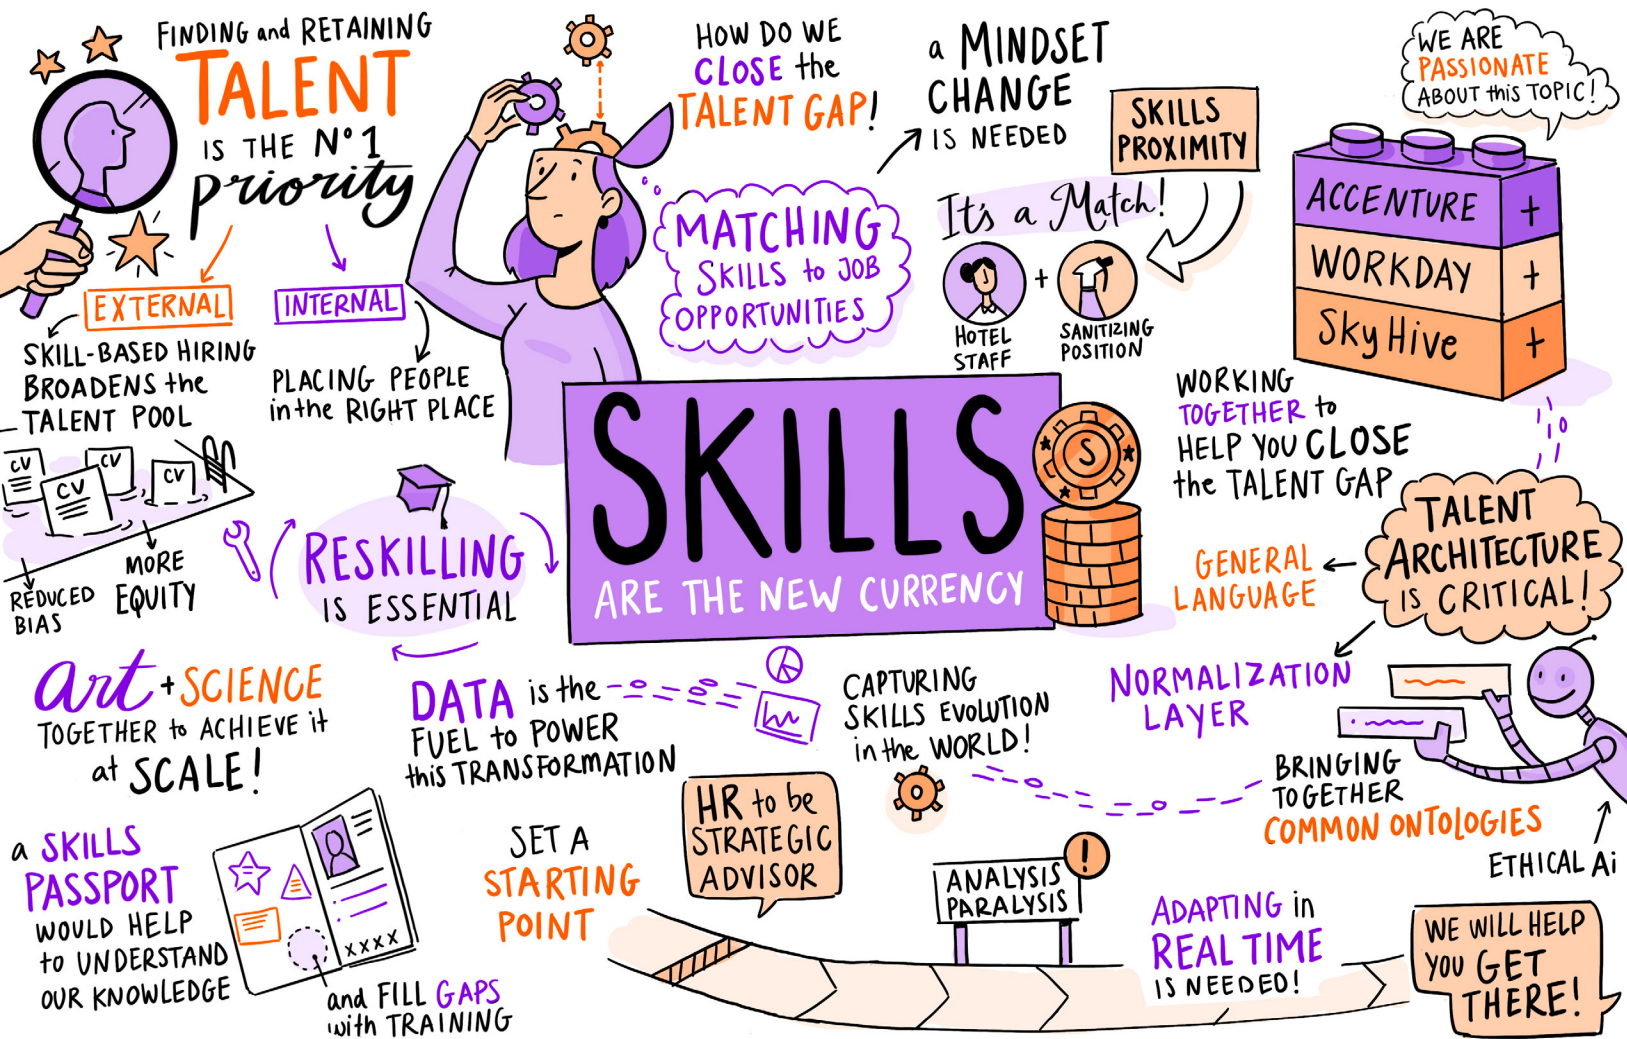 FINDING and RETAINING
TALENT
IS THE Nº 1
priority
EXTERNAL
SKILL-BASED HIRING
BROADENS the
TALENT POOL
CV
CV
CV
CV
REDUCED
BIAS
MORE
EQUITY
INTERNAL
PLACING PEOPLE
in the RIGHT PLACE
HOW DO WE
CLOSE the
TALENT GAP!
MATCHING
SKILLS to JOB
OPPORTUNITIES
a MINDSET
CHANGE
IS NEEDED
SKILLS
PROXIMITY
It's a Match!
+
HOTEL
STAFF
SANITIZING
POSITION
WE ARE
PASSIONATE
ABOUT this TOPIC!
ACCENTURE +
WORKDAY +
SkyHive +
WORKING
TOGETHER to
HELP YOU CLOSE
the TALENT GAP
SKILLS
ARE THE NEW CURRENCY
S
RESKILLING
IS ESSENTIAL
TALENT
ARCHITECTURE
IS CRITICAL!
GENERAL
LANGUAGE
NORMALIZATION
LAYER
BRINGING
TOGETHER
COMMON ONTOLOGIES
ETHICAL Ai
art + SCIENCE
TOGETHER to ACHIEVE it
at SCALE!
DATA is the
FUEL to POWER
this TRANSFORMATION
CAPTURING
SKILLS EVOLUTION
in the WORLD!
a SKILLS
PASSPORT
WOULD HELP
to UNDERSTAND
OUR KNOWLEDGE
XXXX
and FILL GAPS
with TRAINING
SET A
STARTING
POINT
HR to be
STRATEGIC
ADVISOR
ANALYSIS
PARALYSIS
!
ADAPTING in
REAL TIME
IS NEEDED!
WE WILL HELP
YOU GET
THERE!